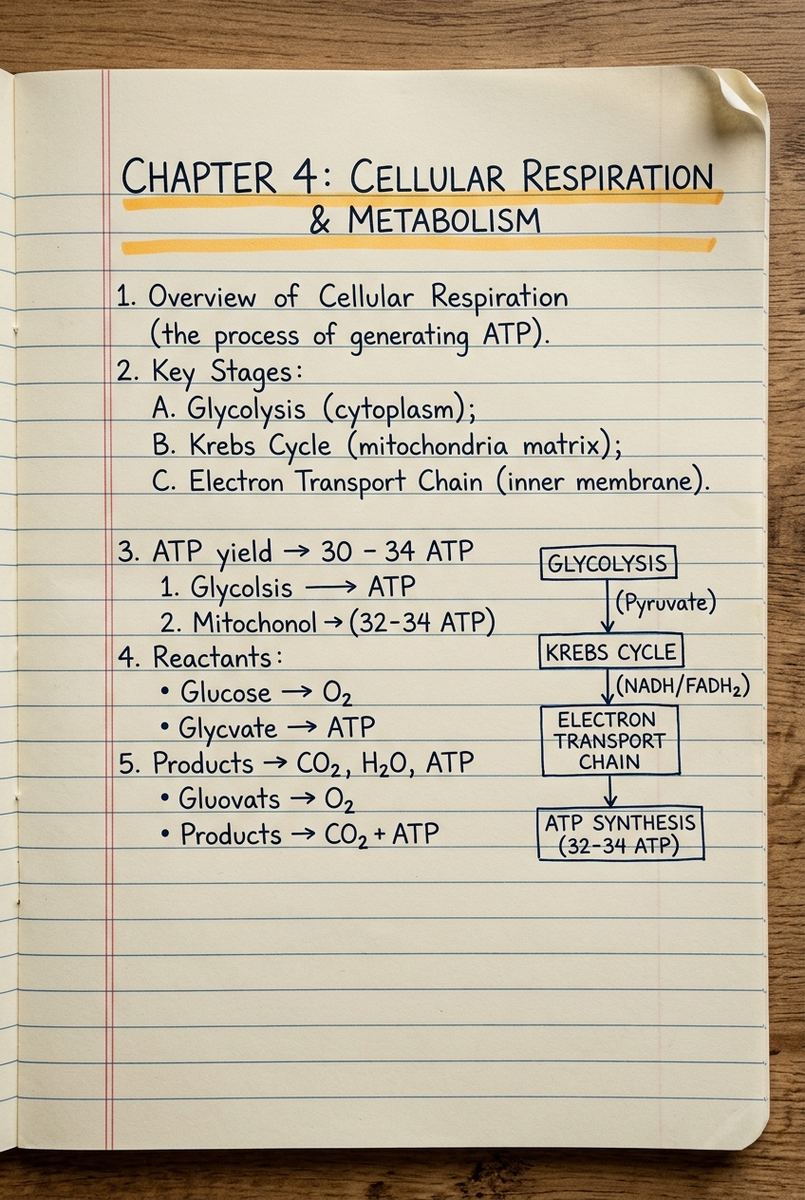 CHAPTER 4: CELLULAR RESPIRATION
& METABOLISM
1. Overview of Cellular Respiration
(the process of generating ATP).
2. Key Stages:
A. Glycolysis (cytoplasm);
B. Krebs Cycle (mitochondria matrix);
C. Electron Transport Chain (inner membrane).
3. ATP yield → 30 - 34 ATP
1. Glycolsis → ATP
2. Mitochonol → (32-34 ATP)
4. Reactants:
• Glucose → O₂
• Glycvate → ATP
5. Products → CO₂, H₂O, ATP
• Gluovats → O₂
• Products → CO₂ + ATP
GLYCOLYSIS
(Pyruvate)
KREBS CYCLE
(NADH/FADH₂)
ELECTRON
TRANSPORT
CHAIN
ATP SYNTHESIS
(32-34 ATP)